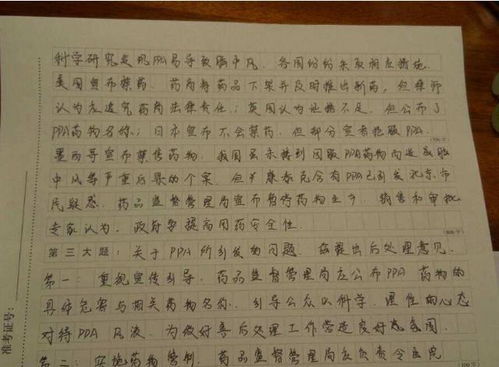 科学研究发现PPA易导致脑中风。各国纷纷采取相应措施。
美国宣布禁药，药商将药品下架并及时推出新药，但律师
认为应追究药商法律责任；英国认为证据不足，但公布了
PPA药物名称；日本宣布不会禁药，但部分 PPA；
墨西哥宣布禁售药物。我国虽未接到因服PPA药物而造成脑
中风等严重后果的个案，但 康泰克含有PPA已引发北京市
民疑惑。药品监督管理局宣布暂停药物生产、销售和审批
专家认为，政府要提高用药安全性。
第三大题：关于PPA所引发的问题，兹提出后处理意见。
第一：重视宣传引导。药品监督管理局应公布PPA药物的
具体危害与相关药物名称，引导公众以科学、理性的心态
对待PPA风波，为做好善后处理工作营造良好的氛围。
第二：实施药物管制。药品监督管理局应负责令医院
准考证号：